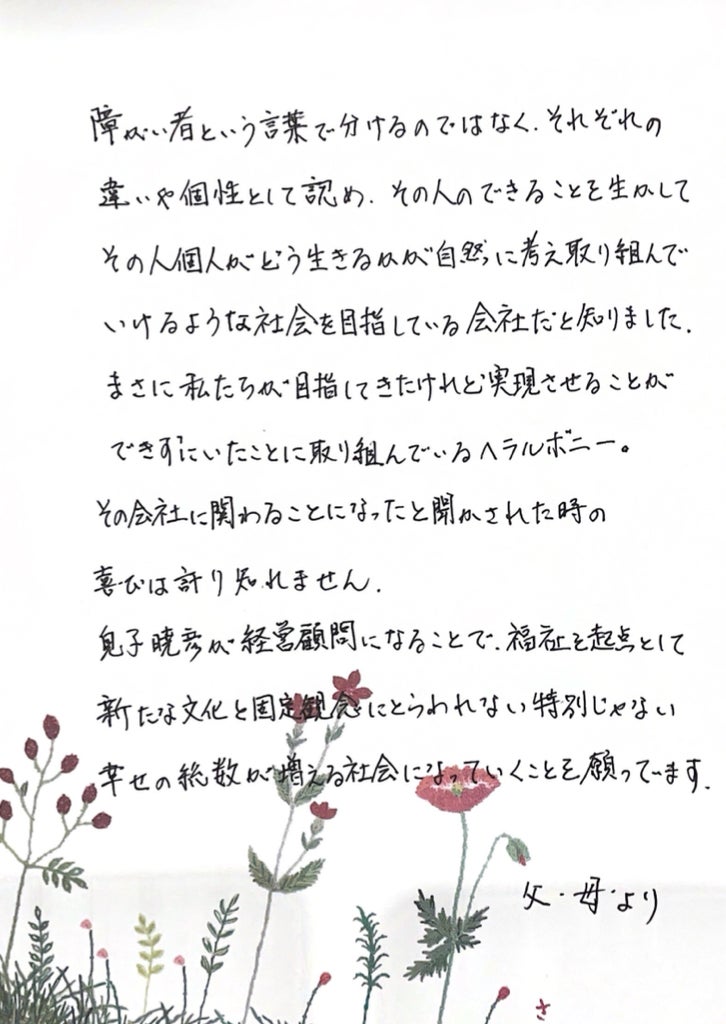 障がい者という言葉で分けるのではなく、それぞれの
違いや個性として認め、その人のできることを生かして
その人個人がどう生きるかが自然に考え取り組んで
いけるような社会を目指している会社だと知りました。
まさに私たちが目指してきたけれど実現させることが
できずにいたことに取り組んでいるヘラルボニー。
その会社に関わることになったと聞かされた時の
喜びは計り知れません。
息子暁彦が経営顧問になることで、福祉を起点として
新たな文化と固定観念にとらわれない特別じゃない
幸せの総数が増える社会になっていくことを願っています。
父・母より
さ